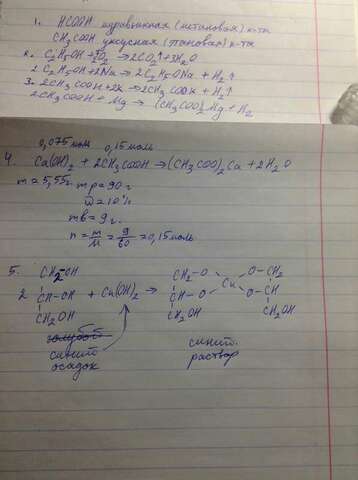 1. HCOOH муравьиная (метановая) к-та
CH₃COOH уксусная (этановая) к-та
2. C₂H₅OH + 3O₂ → 2CO₂↑ + 3H₂O
2 C₂H₅OH + 2Na → 2 C₂H₅ONa + H₂↑
3. 2CH₃COOH + 2K → 2CH₃COOK + H₂↑
2CH₃COOH + Mg → (CH₃COO)₂Mg + H₂
0,075моль 0,15моль
4. Ca(OH)₂ + 2CH₃COOH → (CH₃COO)₂Ca + 2H₂O
m = 5,55г. mр = 90 г
ω = 10%
mв = 9 г.
n = m/M = 9/60 = 0,15 моль
5. CH₂-OH CH₂-O O-CH₂
2 CH-OH + Cu(OH)₂ → CH-O Cu O-CH
CH₂OH CH₂OH CH₂OH
голубой
синий синий
осадок раствор